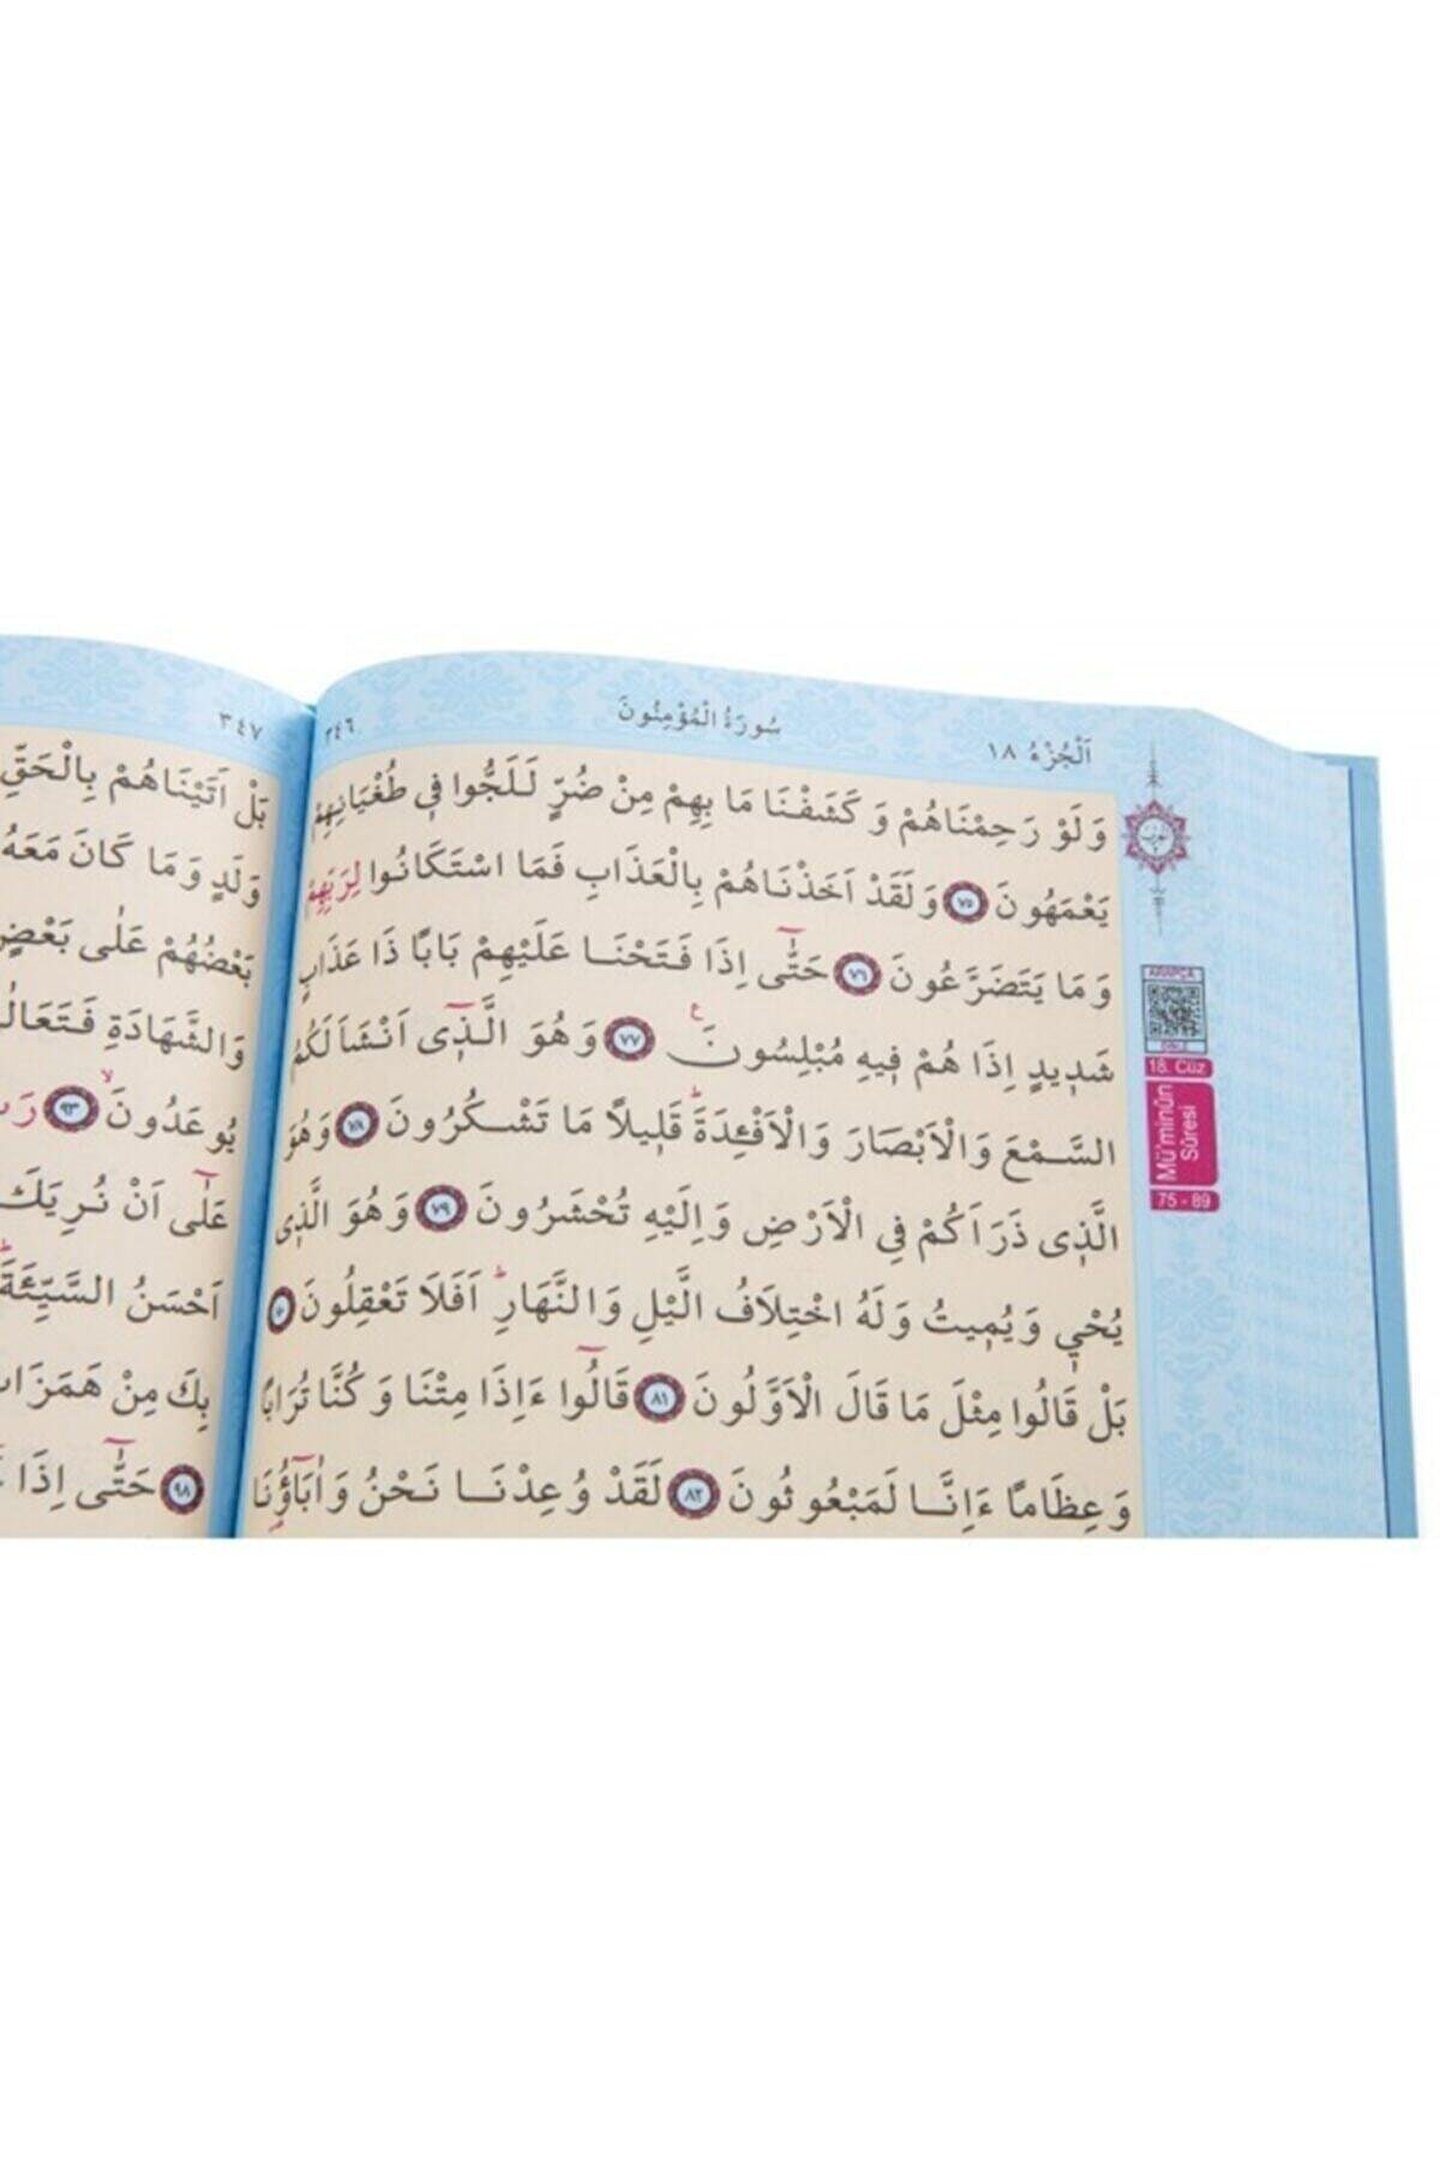 اَلْجُزْءُ ١٨
سُورَةُ الْمُؤْمِنُونَ
٣٤٦
وَلَوْ رَحِمْنَاهُمْ وَكَشَفْنَا مَا بِهِمْ مِنْ ضُرٍّ لَلَجُّوا فٖي طُغْيَانِهِمْ
يَعْمَهُونَ ٧٥ وَلَقَدْ اَخَذْنَاهُمْ بِالْعَذَابِ فَمَا اسْتَكَانُوا لِرَبِّهِمْ
وَمَا يَتَضَرَّعُونَ ٧٦ حَتّٰٓى اِذَا فَتَحْنَا عَلَيْهِمْ بَابًا ذَا عَذَابٍ
شَدٖيدٍ اِذَا هُمْ فٖيهِ مُبْلِسُونَ ع ٧٧ وَهُوَ الَّذٖٓى اَنْشَاَ لَكُمُ
السَّمْعَ وَالْاَبْصَارَ وَالْاَفْـِٔدَةَ ط قَلٖيلًا مَا تَشْكُرُونَ ٧٨ وَهُوَ
الَّذٖى ذَرَاَكُمْ فِي الْاَرْضِ وَاِلَيْهِ تُحْشَرُونَ ٧٩ وَهُوَ الَّذٖى
يُحْيٖ وَيُمٖيتُ وَلَهُ اخْتِلَافُ الَّيْلِ وَالنَّهَارِ ط اَفَلَا تَعْقِلُونَ
بَلْ قَالُوا مِثْلَ مَا قَالَ الْاَوَّلُونَ ٨١ قَالُٓوا ءَاِذَا مِتْنَا وَكُنَّا تُرَابًا
وَعِظَامًا ءَاِنَّا لَمَبْعُوثُونَ ٨٢ لَقَدْ وُعِدْنَا نَحْنُ وَاٰبَٓاؤُ۬نَا
18. Cüz
Mü'minûn
Sûresi
75 - 89
٣٤٧
بَلْ اَتَيْنَاهُمْ بِالْحَقِّ
وَلَدٍ وَمَا كَانَ مَعَهُ
بَعْضُهُمْ عَلٰى بَعْضٍ
وَالشَّهَادَةِ
يُوعَدُونَ لا ٩٣
عَلٰٓى اَنْ نُرِيَكَ
اَحْسَنُ السَّيِّئَةَ ط
بِكَ مِنْ
٩٨ حَتّٰٓى اِذَا